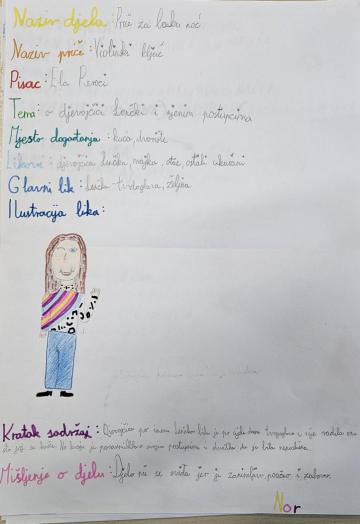 Naziv djela: Priče za laku noć
Naziv priče: Violinski ključ
Pisac: Ela Peroci
Tema: o djevojčici Lenčki i njenim postupcima
Mjesto događanja: kuća, dvorište
Likovi: djevojčica Lenčka, majka, otac, ostali ukućani
Glavni lik: Lenčka - tvrdoglava,
Ilustracija lika:
Kratak sadržaj: Djevojčica po imenu Lenčka bila je po cijele dane tvrdoglava i nije radila ono
što joj se kaže. Na kraju je
Mišljenje o djelu: Djelo mi se sviđa jer je zanimljivo, poučno i zabavno.
Nor